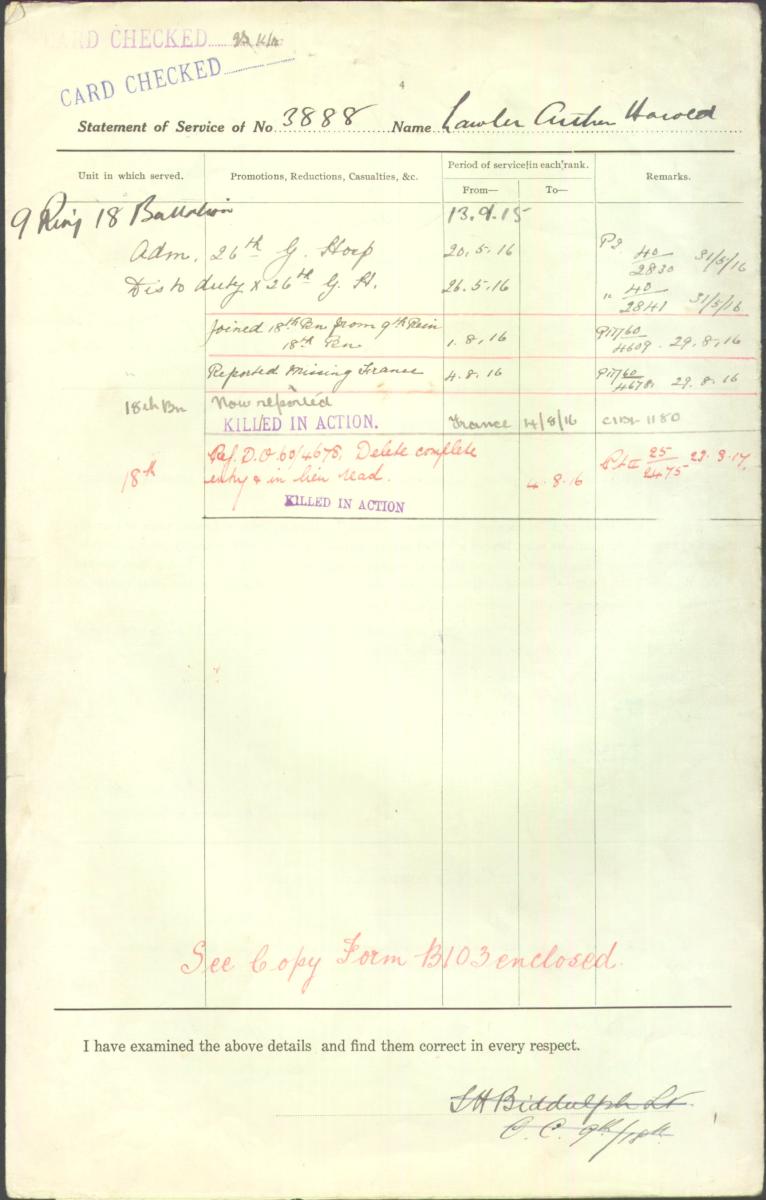 CARD CHECKED
CARD CHECKED
4
Statement of Service of No. 3888 Name Lawler Arthur Harold
Unit in which served. Promotions, Reductions, Casualties, &c. Period of service in each rank. Remarks.
From— To—
9 Rein 18 Battalion 13.9.15
Adm. 26th G. Hosp 20.5.16 P2 40/2830 31/5/16
Dis to duty x 26th G. H. 26.5.16 " 40/2841 31/5/16
Joined 18th Bn from 9th Rein
18th Bn 1.8.16 PII/60/4609 . 29.8.16
" Reported Missing France 4.8.16 PII/60/4678 29.8.16
18th Bn Now reported
KILLED IN ACTION. France 4/8/16 1180
18th Ref. D.O. 60/4678. Delete complete
entry & in lieu read. 4.8.16 Pt II 25/2475 29.3.17
KILLED IN ACTION
See Copy Form B103 enclosed.
I have examined the above details and find them correct in every respect.
Biddulph Lt.
O.C. 9th/18th